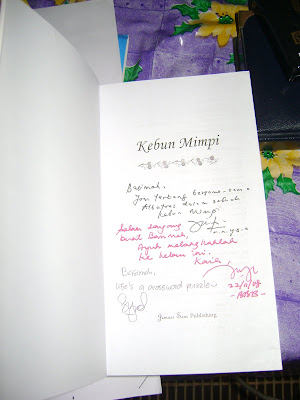 Kebun Mimpi
Basimah,
Jom terbang bersama-sama
Albatros dalam sebuah
Kebun Mimpi
Salam sayang
buat Basimah,
Ayuh melangkahlah
ke kebun ini.
Basimah,
life's a crossword puzzle
22/4/08
Jemari Seni Publishing